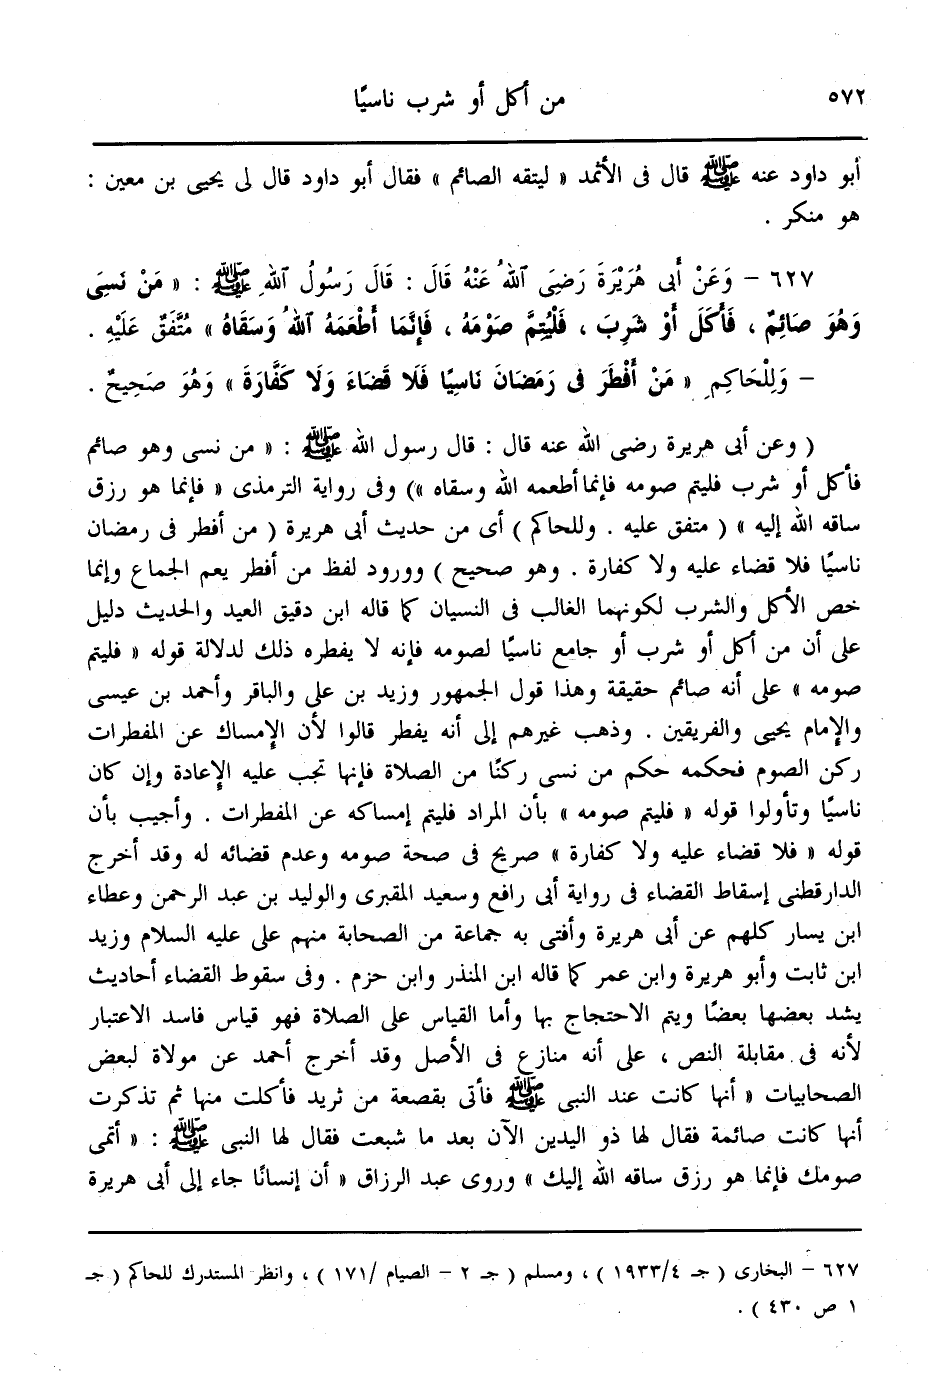 ٥٧٢ من أكل أو شرب ناسيًا
أبو داود عنه ﷺ قال فى الأثمد « ليتقه الصائم » فقال أبو داود قال لى يحيى بن معين :
هو منكر .
٦٢٧ – وَعَنْ أَبى هُرَيْرَةَ رَضِىَ ٱللهُ عَنْهُ قَالَ : قَالَ رَسُولُ ٱللهِ ﷺ : « مَنْ نَسِىَ
وَهُوَ صَائِمٌ ، فَأَكَلَ أَوْ شَرِبَ ، فَلْيُتِمَّ صَوْمَهُ ، فَإِنَّمَا أَطْعَمَهُ ٱللهُ وَسَقَاهُ » مُتَّفَقٌ عَلَيْهِ .
– وَلِلْحَاكِمِ « مَنْ أَفْطَرَ فى رَمَضَانَ نَاسِيًا فَلَا قَضَاءَ وَلَا كَفَّارَةَ » وَهُوَ صَحِيحٌ .
( وعن أبى هريرة رضى الله عنه قال : قال رسول الله ﷺ : « من نسى وهو صائم
فأكل أو شرب فليتم صومه فإنما أطعمه الله وسقاه ») وفى رواية الترمذى « فإنما هو رزق
ساقه الله إليه » ( متفق عليه . وللحاكم ) أى من حديث أبى هريرة ( من أفطر فى رمضان
ناسيًا فلا قضاء عليه ولا كفارة . وهو صحيح ) وورود لفظ من أفطر يعم الجماع وإنما
خص الأكل والشرب لكونهما الغالب فى النسيان كما قاله ابن دقيق العيد والحديث دليل
على أن من أكل أو شرب أو جامع ناسيًا لصومه فإنه لا يفطره ذلك لدلالة قوله « فليتم
صومه » على أنه صائم حقيقة وهذا قول الجمهور وزيد بن على والباقر وأحمد بن عيسى
والإمام يحيى والفريقين . وذهب غيرهم إلى أنه يفطر قالوا لأن الإمساك عن المفطرات
ركن الصوم فحكمه حكم من نسى ركنًا من الصلاة فإنها تجب عليه الإعادة وإن كان
ناسيًا وتأولوا قوله « فليتم صومه » بأن المراد فليتم إمساكه عن المفطرات . وأجيب بأن
قوله « فلا قضاء عليه ولا كفارة » صريح فى صحة صومه وعدم قضائه له وقد أخرج
الدارقطنى إسقاط القضاء فى رواية أبى رافع وسعيد المقبرى والوليد بن عبد الرحمن وعطاء
ابن يسار كلهم عن أبى هريرة وأفتى به جماعة من الصحابة منهم على عليه السلام وزيد
ابن ثابت وأبو هريرة وابن عمر كما قاله ابن المنذر وابن حزم . وفى سقوط القضاء أحاديث
يشد بعضها بعضًا ويتم الاحتجاج بها وأما القياس على الصلاة فهو قياس فاسد الاعتبار
لأنه فى مقابلة النص ، على أنه منازع فى الأصل وقد أخرج أحمد عن مولاة لبعض
الصحابيات « أنها كانت عند النبى ﷺ فأتى بقصعة من ثريد فأكلت منها ثم تذكرت
أنها كانت صائمة فقال لها ذو اليدين الآن بعد ما شبعت فقال لها النبى ﷺ : « أتمى
صومك فإنما هو رزق ساقه الله إليك » وروى عبد الرزاق « أن إنسانًا جاء إلى أبى هريرة
٦٢٧ – البخارى ( جـ ١٩٣٣/٤ ) ، ومسلم ( جـ ٢ – الصيام /١٧١ ) ، وانظر المستدرك للحاكم ( جـ
١ ص ٤٣٠ ) .